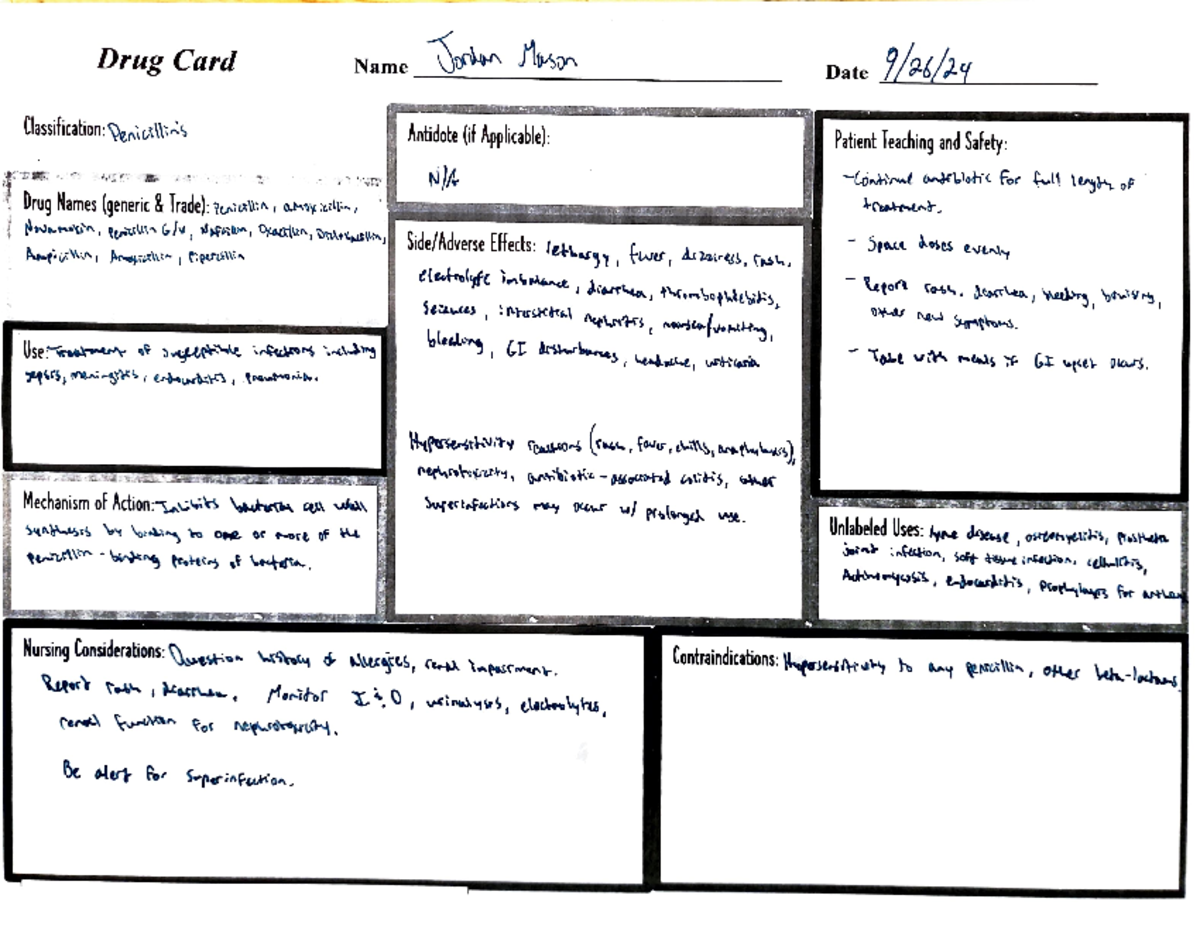 Drug Card
Name Jordan Mason
Date 9/26/24
Classification: Penicillins
Drug Names (generic & Trade): Penicillin, amoxicillin,
Novamoxin, penicillin G/V, Nafcillin, Oxacillin, Dicloxacillin,
Ampicillin, Amoxicillin, Piperacillin
Use: Treatment of susceptible infections including
sepsis, meningitis, endocarditis, pneumonia.
Mechanism of Action: Inhibits bacterial cell wall
synthesis by binding to one or more of the
penicillin-binding proteins of bacteria.
Antidote (if Applicable):
N/A
Side/Adverse Effects: lethargy, fever, dizziness, rash,
electrolyte imbalance, diarrhea, thrombophlebitis,
Seizures, interstitial nephritis, nausea/vomiting,
bleeding, GI disturbances, headache, urticaria
Hypersensitivity reactions (rash, fever, chills, anaphylaxis),
nephrotoxicity, antibiotic-associated colitis, other
Superinfections may occur w/ prolonged use.
Patient Teaching and Safety:
- Continue antibiotic for full length of
treatment.
- Space doses evenly
- Report rash, diarrhea, bleeding, bruising,
other new symptoms.
- Take with meals if GI upset occurs.
Unlabeled Uses: lyme disease, osteomyelitis, prosthetic
joint infection, soft tissue infection, cellulitis,
Actinomycosis, endocarditis, prophylaxis for
Nursing Considerations: Question history of allergies, renal impairment.
Report rash, diarrhea. Monitor I & O, urinalyses, electrolytes,
renal function for nephrotoxicity.
Be alert for superinfection.
Contraindications: Hypersensitivity to any penicillin, other beta-lactams.